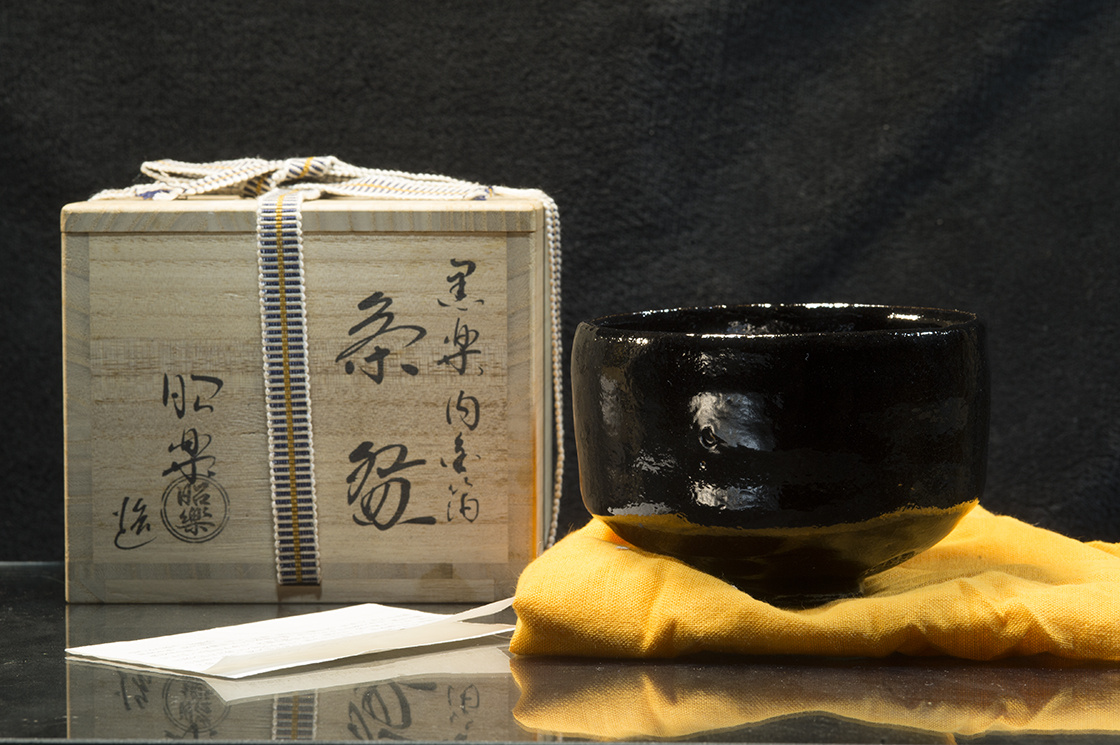 黒楽内金箔
茶碗
昭楽
昭樂
造